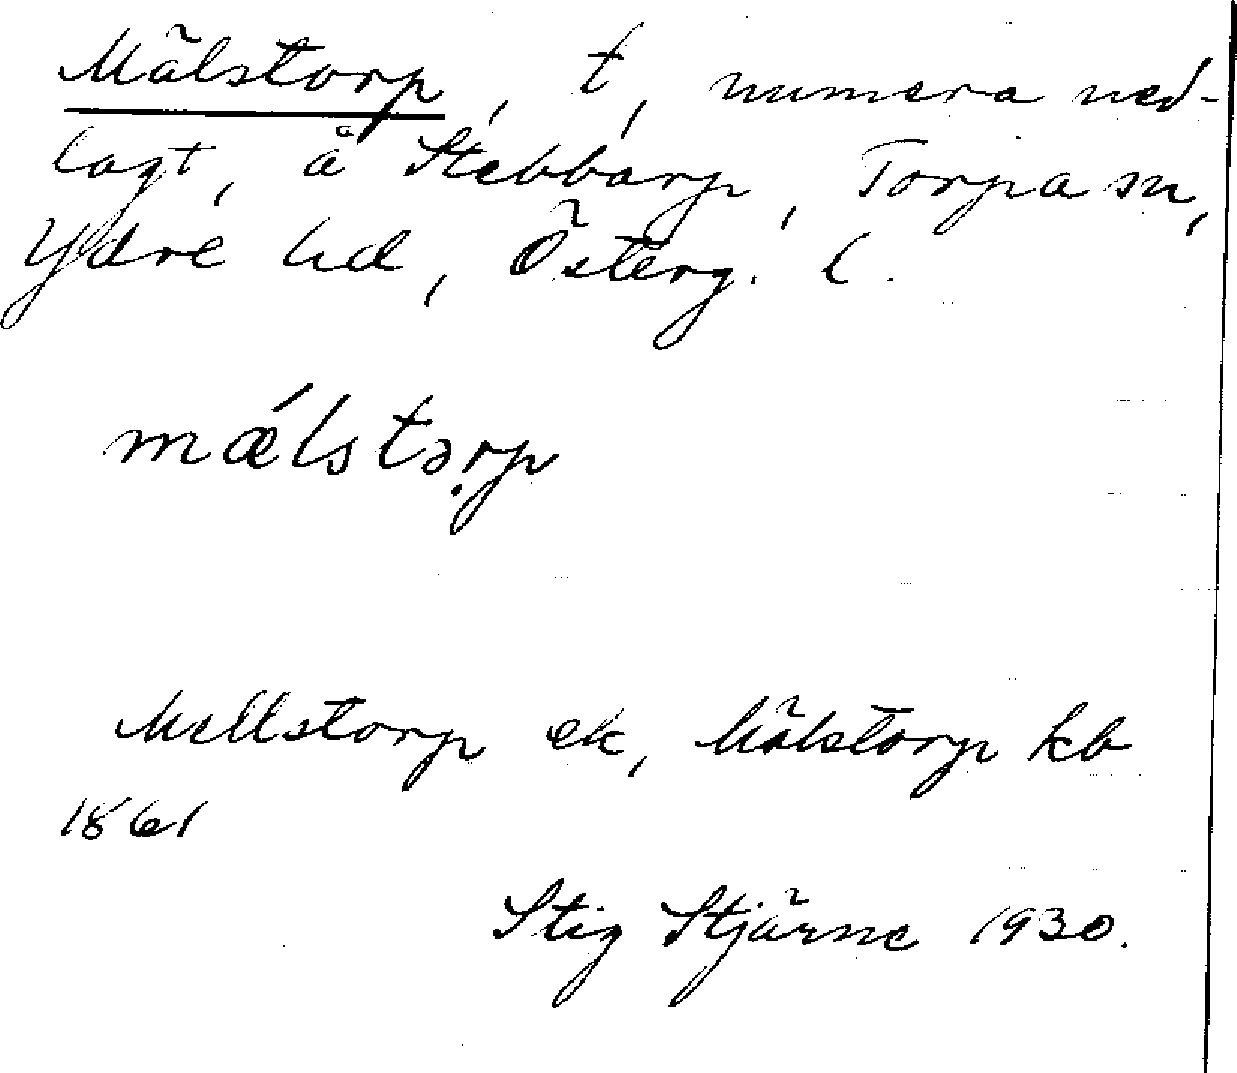 Mälstorp, t, numera ned-
lagt, å Stebbarp, Torpa sn,
Ydre hd, Österg. l.
mǽlstɔ̣rp
Mellstorp ek, Mälstorp kb
1861
Stig Stjärne 1930.